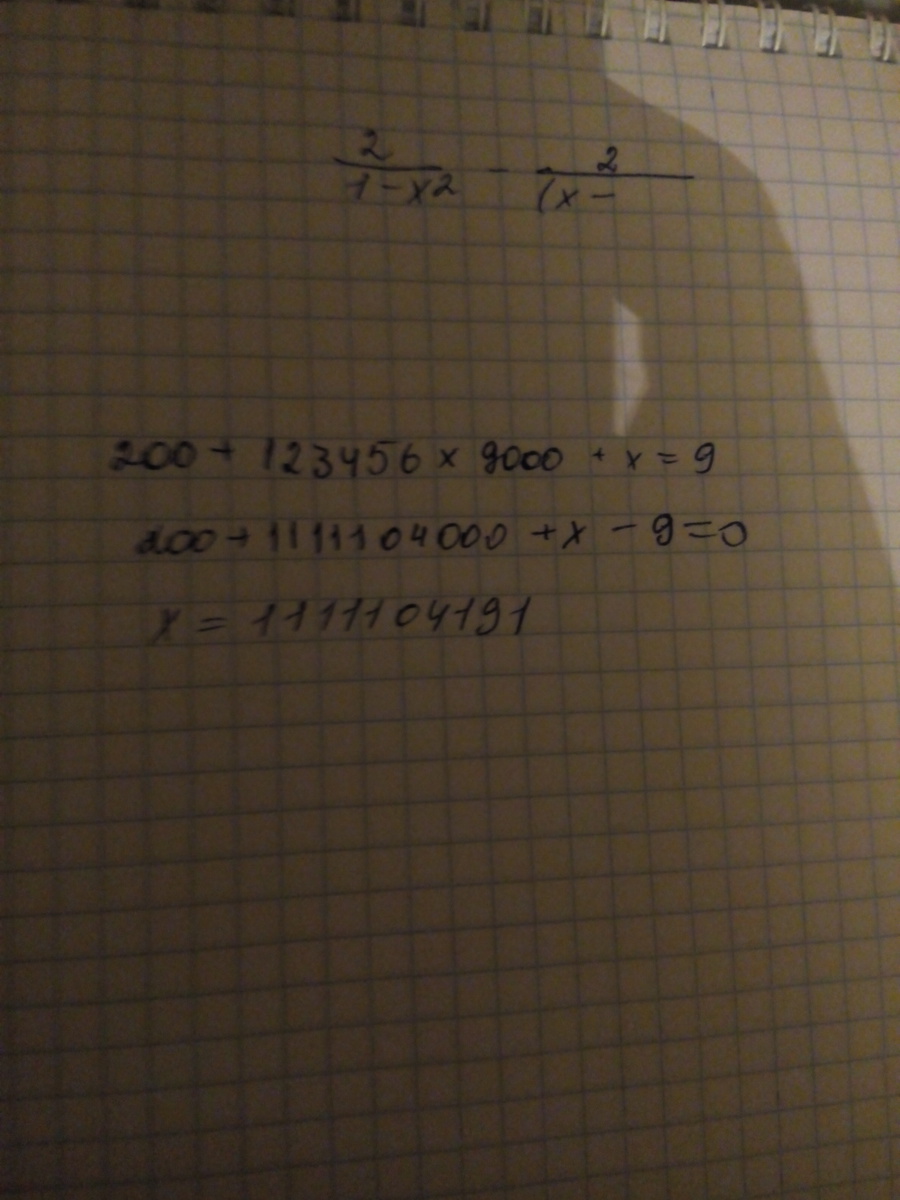 2/(1-x2) - 2/(x-
200+123456x9000+x=9
200+1111104000+x-9=0
x=1111104191